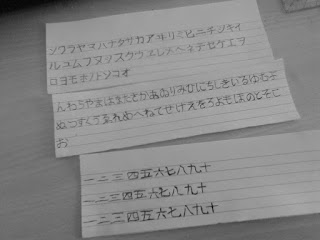 ンワラヤマハナタサカアヰリミヒニチシキイ
ルユムフヌツスクウヱレメヘネテセケエヲ
ロヨモホノトソコオ
んわらやまはなたさかあゐりみひにちしきいるゆむふ
ぬつすくうゑれめへねてせけえをろよもほのとそこ
お
一二三四五六七八九十
一二三四五六七八九十
一二三四五六七八九十